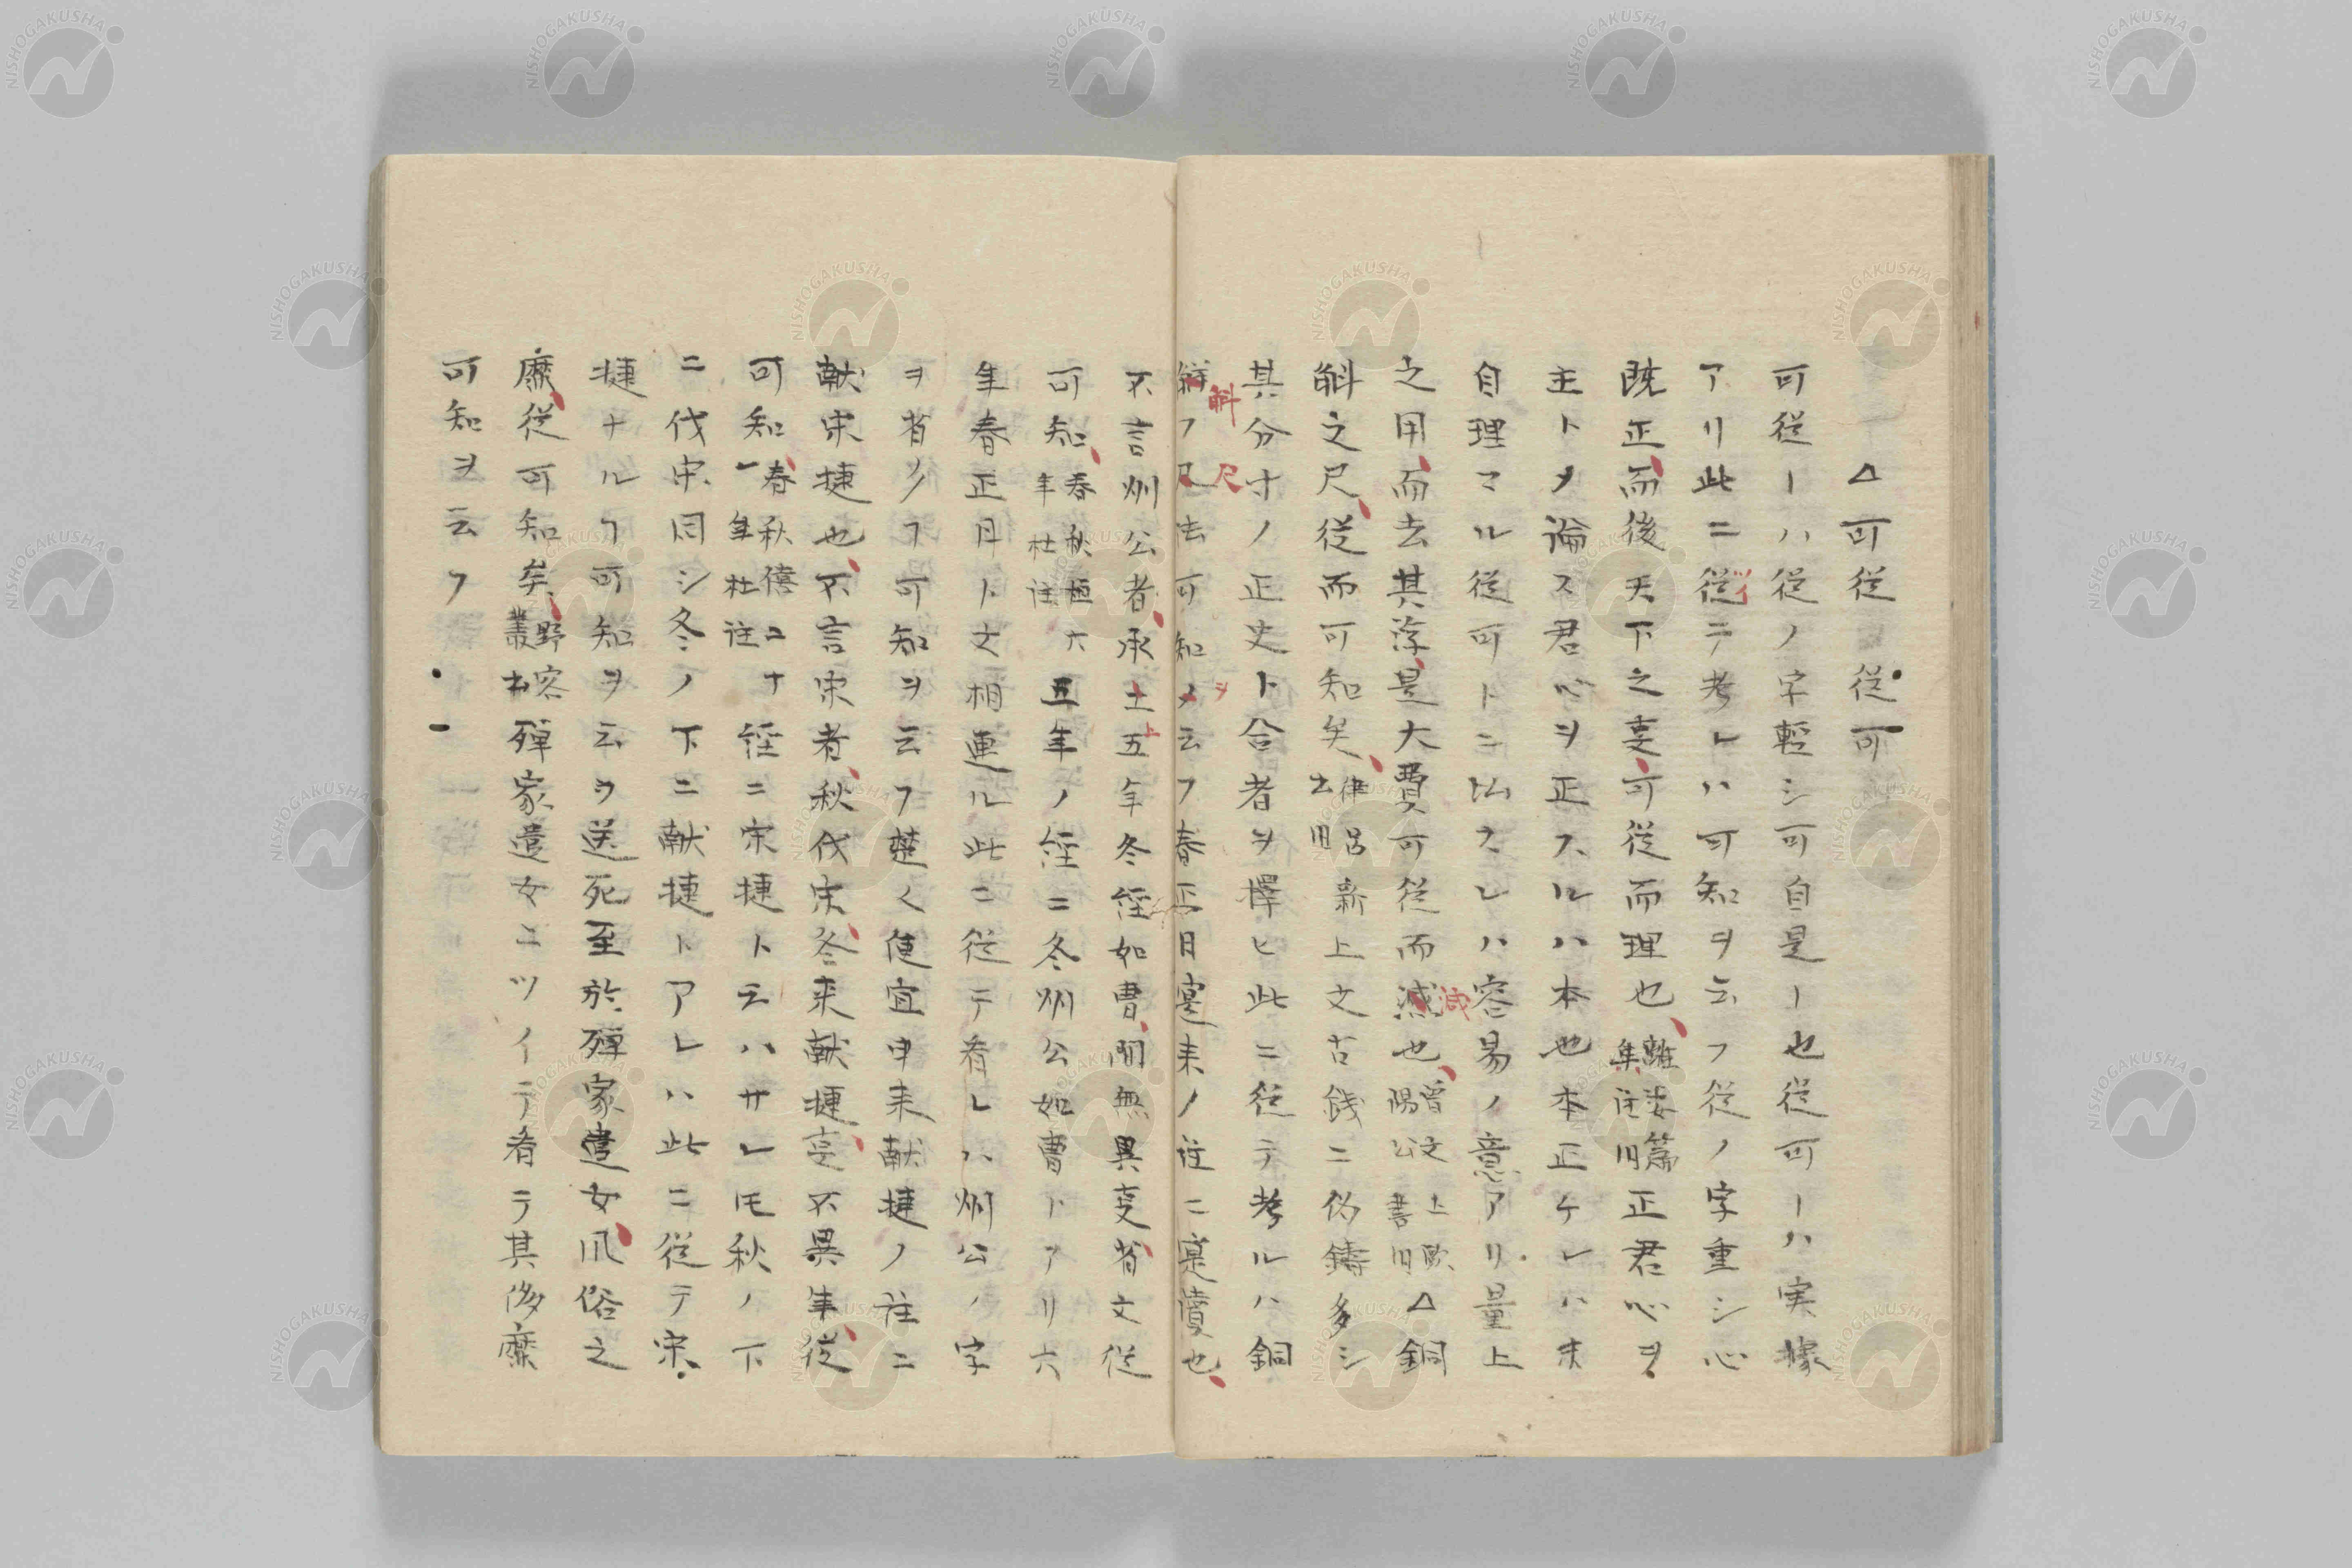 △可従　従可
可従ーハ従ノ字輕シ可自是ー也従可ーハ実據
アリ此ニ従テ考レハ可知ヲ云フ従ノ字重シ心
既正而後天下之事可従而理也離婁篇集注朱正君心ヲ
主トメ論ス君心ヲ正スルハ本也本正ケレハ末
自理マル従可トニ比スレハ容易ノ意アリ量上
之用而去其浮是大費可従而減也曽文上欧陽公書△銅
斛之尺従而可知矣律呂新上文古銭ニ偽鋳多シ
其分寸ノ正史ト合者ヲ擇ヒ此ニ従テ考ルハ銅
斛フ尺法可知メ云フ春正月寔来ノ注ニ寔實也
不言州公者承上五年冬経如曹間無異事省文従
可知春秋桓六年杜注五年ノ経ニ冬州公如曹トアリ六
年春正月ト文相連ル此ニ従テ看レハ州公ノ字
ヲ省クフ可知ヲ云フ楚人使宜申来献捷ノ注ニ
献宋捷也不言宋者秋伐宋冬来献捷事不異年従
可知春秋僖二十一年杜注経ニ宋捷ト云ハサレ𪜈秋ノ下
ニ伐宋同シ冬ノ下ニ献捷トアレハ此ニ従テ宋
捷ナルフ可知ヲ云フ送死至於殫家遣女風俗之
靡従可知矣野客叢書殫家遣女ニツイテ看テ其侈靡
可知ヲ云フ
斛
尺
ヲ
減
上
NISHOGAKUSHA